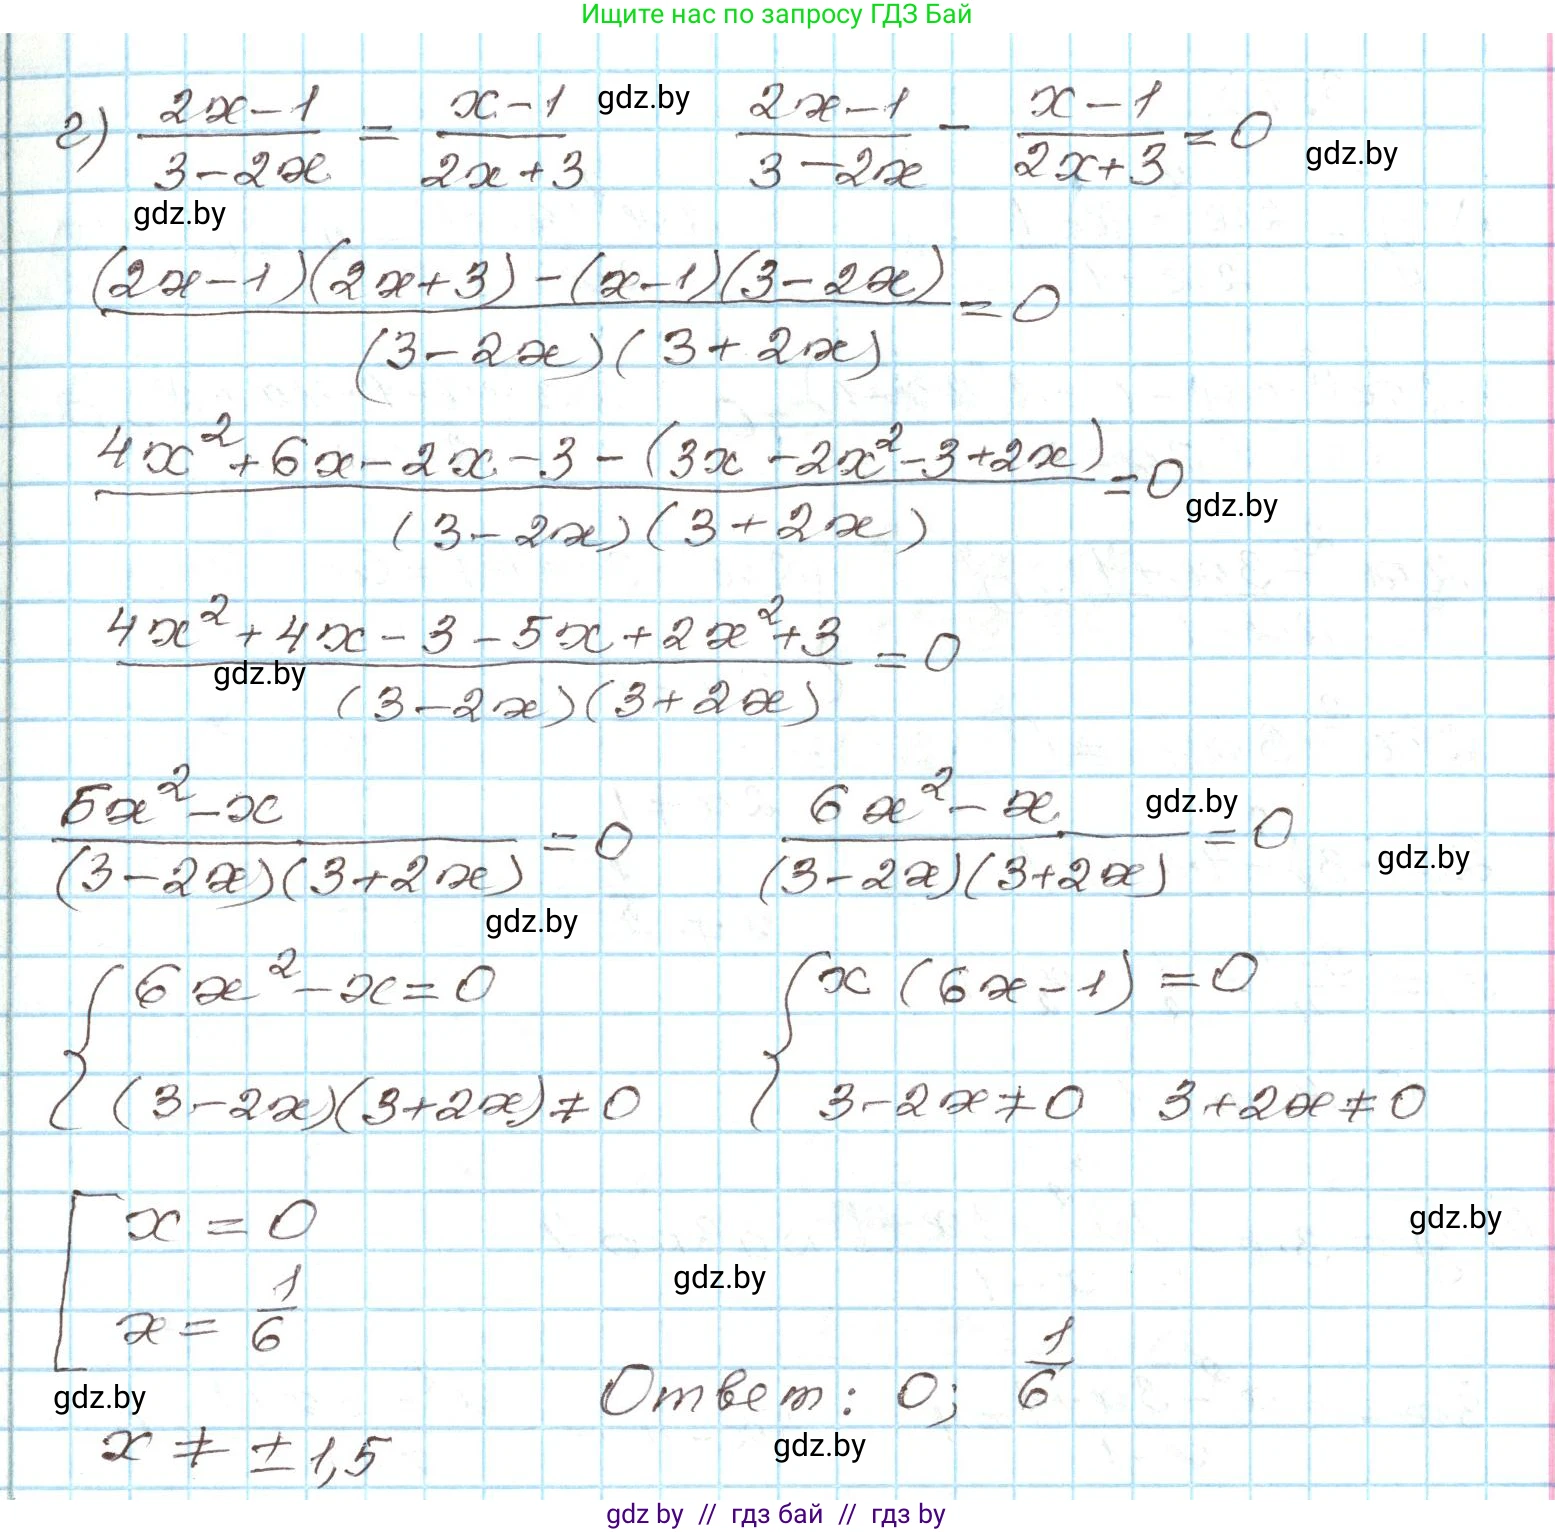 Ищите нас по запросу ГДЗ Бай
г) (2x-1)/(3-2x) = (x-1)/(2x+3) gdz.by (2x-1)/(3-2x) - (x-1)/(2x+3) = 0 gdz.by
gdz.by
((2x-1)(2x+3)-(x-1)(3-2x))/((3-2x)(3+2x)) = 0
(4x²+6x-2x-3-(3x-2x²-3+2x))/((3-2x)(3+2x)) = 0 gdz.by
(4x²+4x-3-5x+2x²+3)/((3-2x)(3+2x)) = 0
gdz.by
(6x²-x)/((3-2x)(3+2x)) = 0 (6x²-x)/((3-2x)(3+2x)) = 0 gdz.by
gdz.by
gdz.by
{ 6x²-x=0 { x(6x-1)=0
(3-2x)(3+2x)≠0 3-2x≠0 3+2x≠0
[ x = 0 gdz.by
gdz.by
x = 1/6
gdz.by Ответ: 0; 1/6
x ≠ ±1,5 gdz.by
gdz by // гдз бай // гдз by